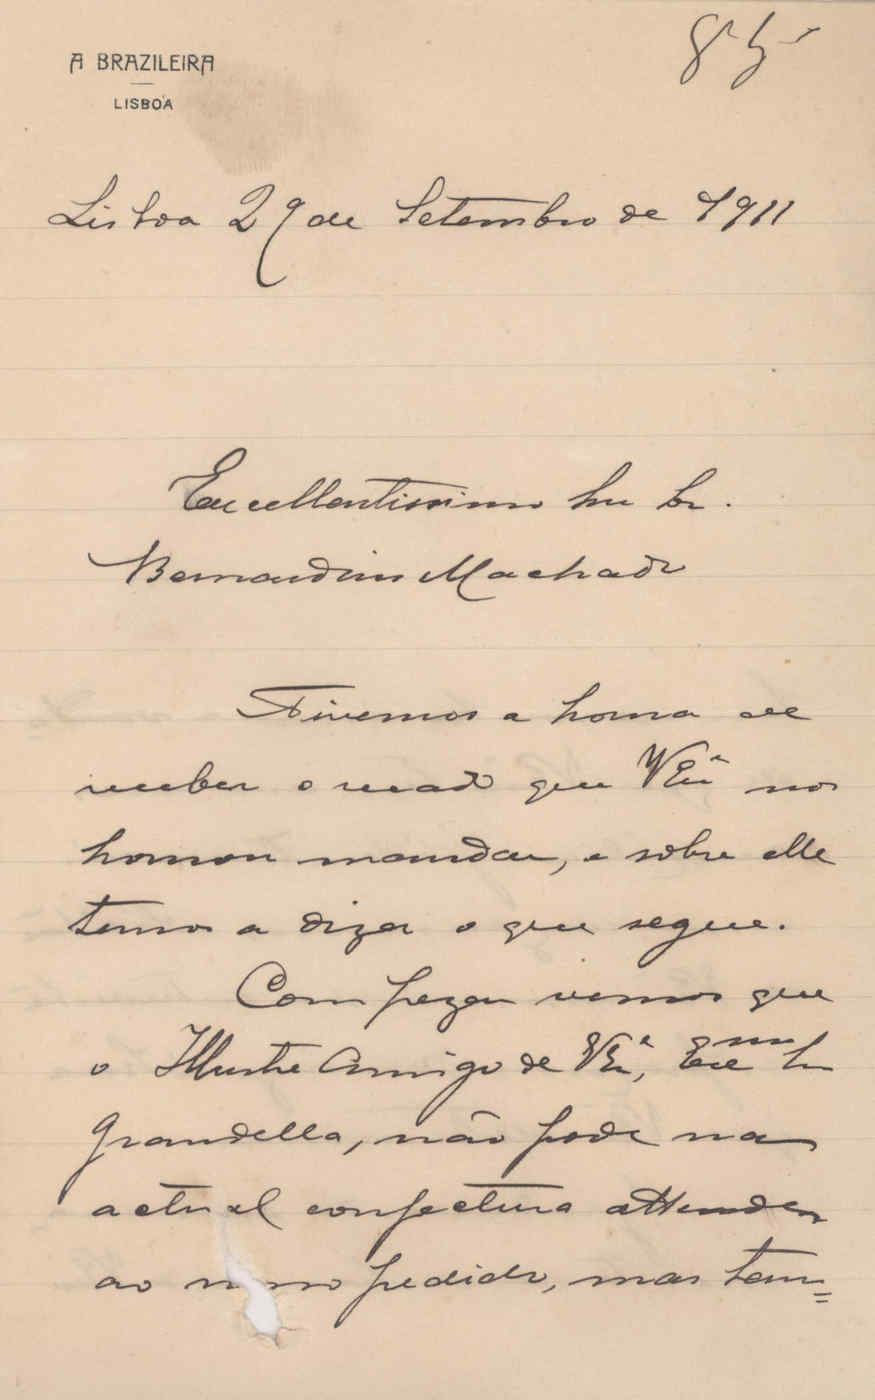 A BRAZILEIRA
LISBOA
Lisboa 29 de Setembro de 1911
Excellentissimo Snr Dr.
Bernardino Machado
Tivemos a honra de
receber o recado que VExª nos
honrou mandar, e sobre elle
temos a dizer o que segue.
Com pezar vemos que
o Illustre Amigo de VExª, Exmo Snr
Grandella, não pode na
actual confectura attender
ao nosso pedido, mas tem=